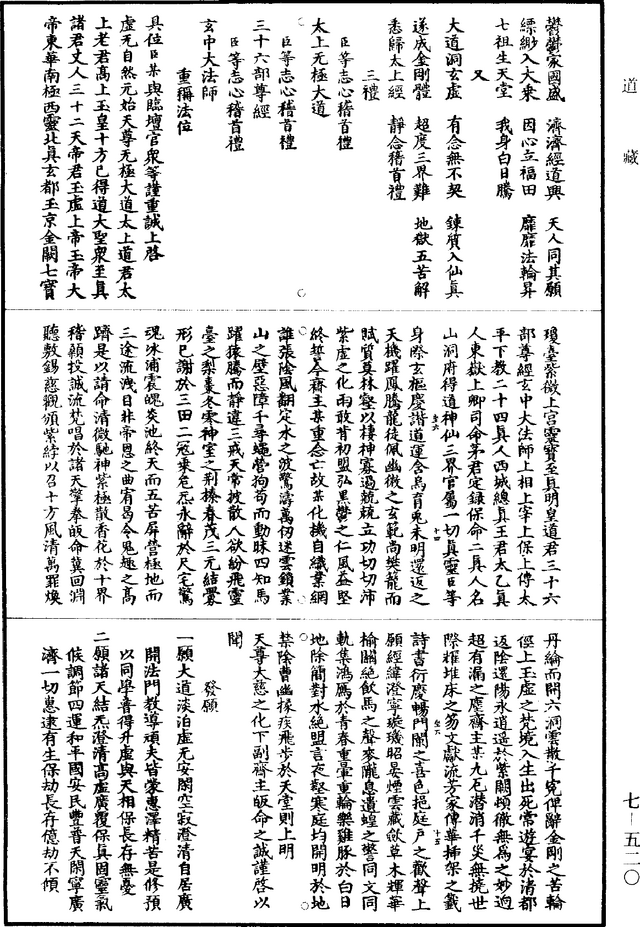 道藏
鬱鬱家國盛　濟濟經道興　天人同其願
縹緲入大乘　因心立福田　靡靡法輪昇
七祖生天堂　我身白日騰
又
大道洞玄虛　有念無不契　鍊質入仙真
遂成金剛體　超度三界難　地獄五苦解
悉歸太上經　靜念稽首禮
三禮
臣等志心稽首禮
太上无極大道
臣等志心稽首禮
三十六部尊經
臣等志心稽首禮
玄中大法師
重稱法位
具位臣某與臨壇官衆等謹重誠上啓
虛无自然元始天尊无極大道太上道君太
上老君高上玉皇十方已得道大聖衆至真
諸君丈人三十二天帝君玉虛上帝玉帝大
帝東華南極西靈北真玄都玉京金闕七寶
瓊臺紫微上宮靈寶至真明皇道君三十六
部尊經玄中大法師上相上宰上保上傅太
平下教二十四真人西城總真王君太乙真
人東嶽上卿司命茅君定錄保命二真人名
山洞府得道神仙三界官屬一切真靈臣等
身際玄樞慶諧道運含烏育兔未明還返之
天機躍鳳騰龍徒佩幽微之玄範尚樊籠而
賦質莫林壑以棲神寡過兢兢立功切切沛
紫虛之化雨敢背初盟弘黑鬱之仁風益堅
終誓今齋主某重念亡故某化機自織業網
誰張陰風翻定水之波驚濤萬仞迷雲鎖業
山之壁惡障千尋蠅營狗苟而動昧四知馬
躍猿騰而靜違三戒天常披散人欲紛飛靈
臺之梨棗冬零神室之荆榛春茂三元結釁
形已謝於三田二冦乘危炁永辭於尺宅驚
魂冰浦震魄炎池終天而五苦屏營極地而
三途流洩日非帝恩之曲宥曷令鬼趣之高
躋是以請命清微馳神紫極散香花於十界
稽願投誠流梵唱於諸天擎拳皈命冀回淵
聽敷錫慈觀頒紫綍以召十方風清萬罪煥
丹綸而開六洞雲散千寃俾辭金剛之苦輪
徑上玉虛之梵境入生出死常遊宴於清都
返陰還陽永逍遥於紫闕頓徹無爲之妙逈
超有漏之塵齋主某九厄潛消千災無撓世
際耀堆床之笏文獻流芳家傳華插架之籤
詩書衍慶暢門闌之喜色挹庭戶之歡聲上
願經緯澄寧璇璣昭晏煙雲藏歛草木輝華
榆關絶飲馬之聲麥隴息遺蝗之警同文同
軌集鴻鴈於青春重暈重輪樂雞豚於白日
地除簡對水絶盟言夜壑寒庭均開明於地
禁除曹幽椽疾飛步於天堂則上明
天尊大慈之化下副齋主皈命之誠謹啓以
聞
發願
一願大道淡泊虛无安閑空寂澄清自居廣
開法門教導頑夫皆蒙惠澤精苦是修預
以同學普得升虛與天相保長存無憂
二願諸天結炁澄清高虛廣覆保真固靈氣
候調節四運和平國安民豐普天閑寧廣
濟一切惠逮有生保劫長存億劫不傾
七－五二〇